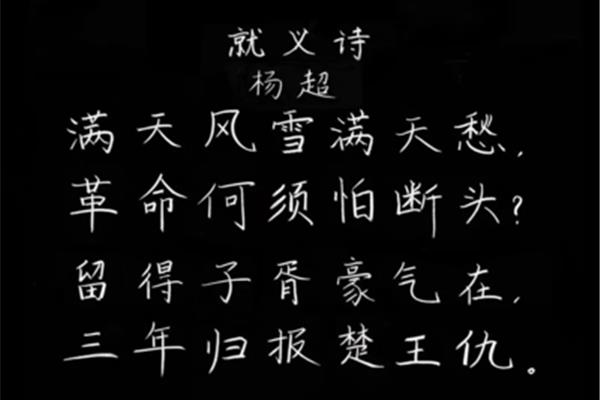 就义诗
杨超
满天风雪满天愁,
革命何须怕断头?
留得子胥豪气在,
三年归报楚王仇。